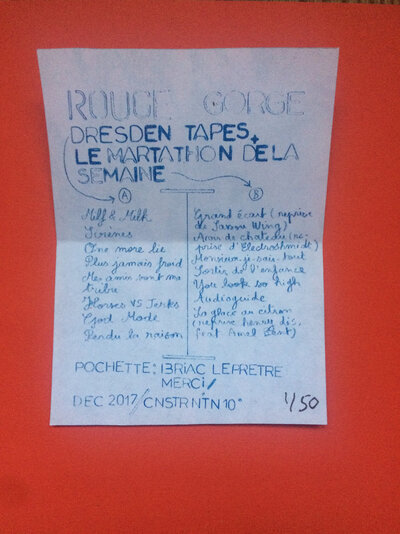 ROUGE GORGE
DRESDEN TAPES +
LE MARTATHON DE LA
SEMAINE
A
Milf & Milk
Sirènes
One more lie
Plus jamais froid
Mes amis sont ma
tribu
Horses VS Jerks
God Mode
Perdu la raison
B
Grand écart (reprise
de Wing)
Amis de chateau (re-
prise d'Electroshmidt)
Monsieur-je-sais-tout
Sortir de l'enfance
You look so high
Audioguide
La glace au citron
(reprise henri dis,
feat Amel Zest)
POCHETTE: BRIAC LEPRETRE
MERCI/
DEC 2017/CNSTRNTN 10°
1/50